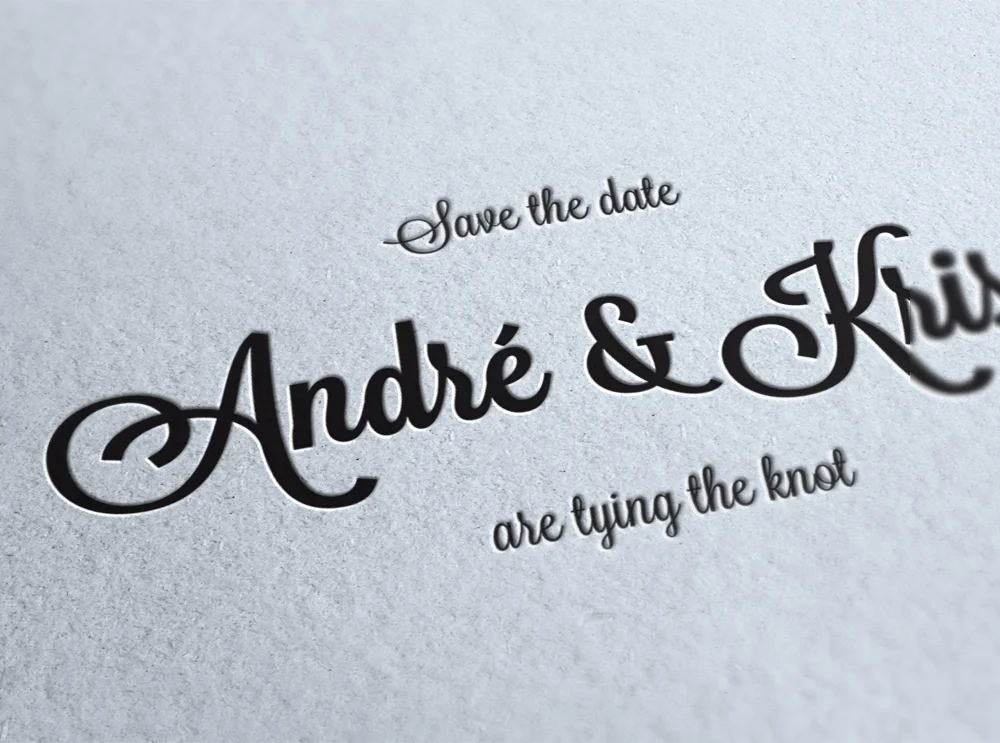 Save the date
André & Kris
are tying the knot